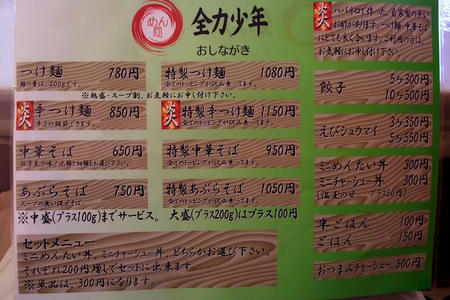 めん
麺
全力少年
おしながき
炎
ハバネロで作った、自家製の辛い
つけ麺 780円
麺の量は、200gです。
特製つけ麺 1080円
全てのトッピングが沢山乗ってます。
※熱盛・スープ割、お気軽にお申し付け下さい。
炎
辛つけ麺 850円
辛さの調節できます。
炎
特製辛つけ麺 1150円
全てのトッピングが沢山乗ってます。
中華そば 650円
特製中華そば 950円
全てのトッピングが沢山乗ってます。
あぶらそば 750円
スープの無い混ぜそば。
特製あぶらそば 1050円
全てのトッピングが沢山乗ってます。
※中盛(プラス100g)までサービス。 大盛(プラス200g)はプラス100円
セットメニュー
ミニめんたい丼、ミニチャーシュー丼、どちらかお選び下さい。
それぞれ200円増しでセットに出来ます。
※単品は、300円になります
餃子
5ヶ300円
10ヶ500円
えびシュウマイ
3ヶ350円
5ヶ550円
ミニめんたい丼 300円
ミニチャーシュー丼 300円
(温玉のせ プラス50円)
半ごはん 100円
ごはん 150円
おつまみチャーシュー 500円